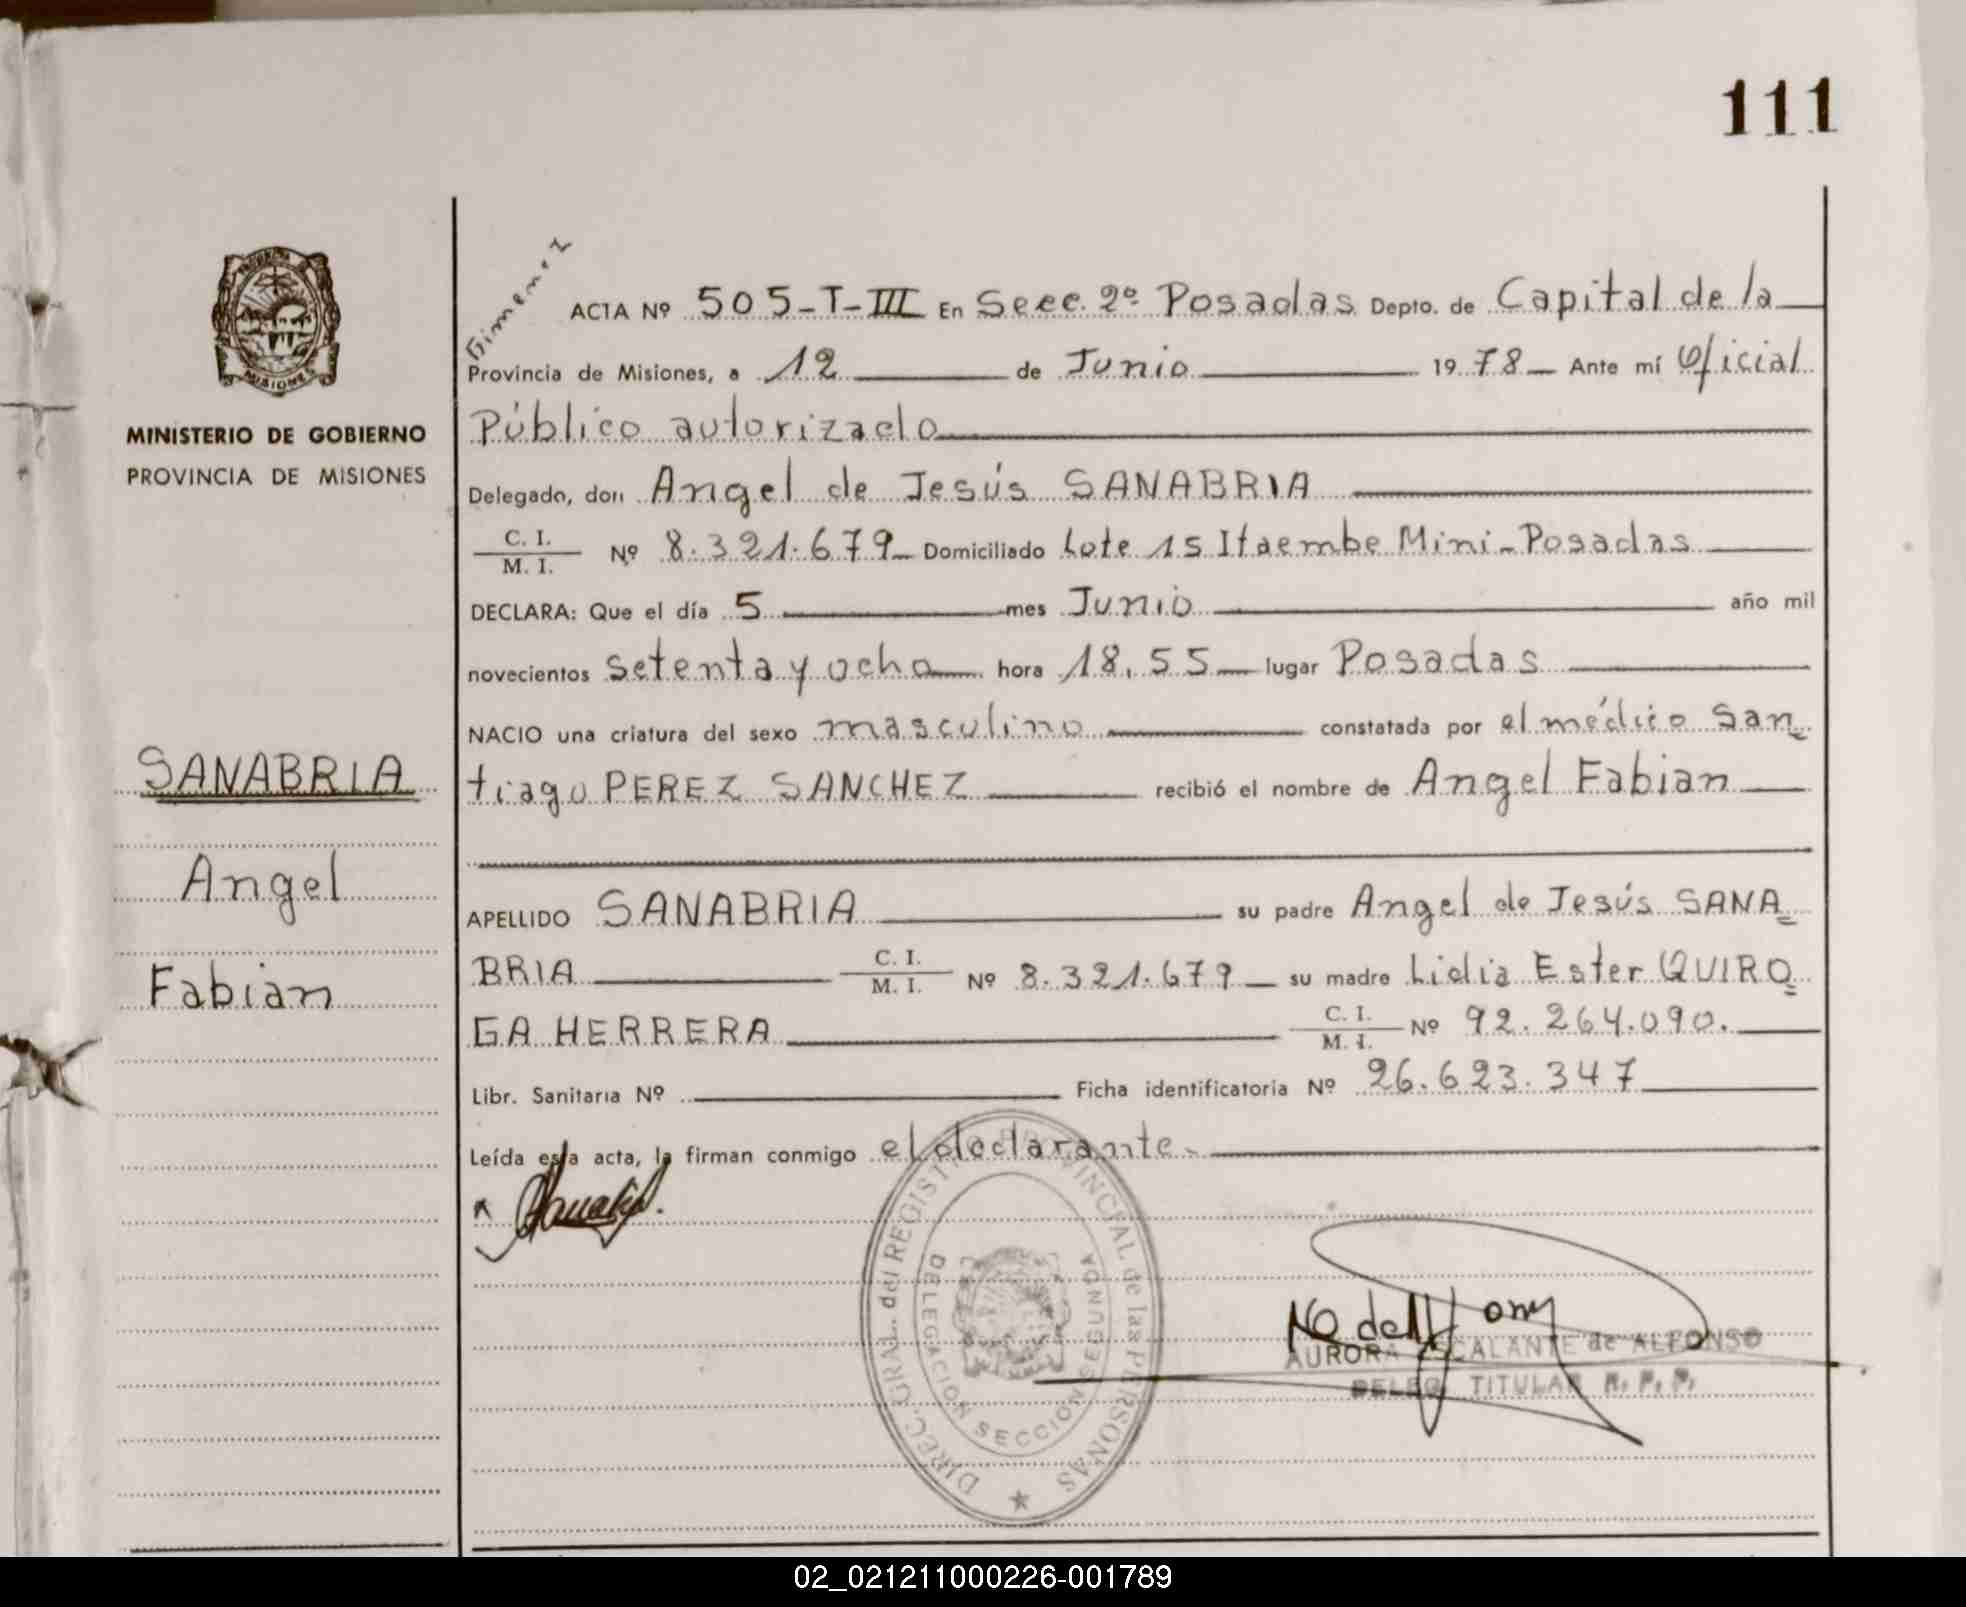 111
PROVINCIA DE
MISIONES
MINISTERIO DE GOBIERNO
PROVINCIA DE MISIONES
SANABRIA
Angel
Fabian
Gimenez
ACTA Nº 505-T-III En Secc. 2º Posadas Depto. de Capital de la
Provincia de Misiones, a 12 de Junio 1978 Ante mí Oficial
Público autorizado
Delegado, don Angel de Jesús SANABRIA
C. I.
M. I. Nº 8.321.679 Domiciliado Lote 15 Itaembe Mini-Posadas
DECLARA: Que el día 5 mes Junio año mil
novecientos setenta y ocho hora 18,55 lugar Posadas
NACIO una criatura del sexo masculino constatada por el médico San
tiago PEREZ SANCHEZ recibió el nombre de Angel Fabian
APELLIDO SANABRIA su padre Angel de Jesús SANA
BRIA C. I.
M. I. Nº 8.321.679 su madre Lidia Ester QUIRO
GA HERRERA C. I.
M. I. Nº 92.264.090.
Libr. Sanitaria Nº Ficha identificatoria Nº 26.623.347
Leída esta acta, la firman conmigo el declarante
DIREC. GRAL. del REGISTRO PROVINCIAL de las PERSONAS
DELEGACION SECCION SEGUNDA
AURORA ESCALANTE de ALFONSO
DELEG. TITULAR R. P. P.
02_021211000226-001789